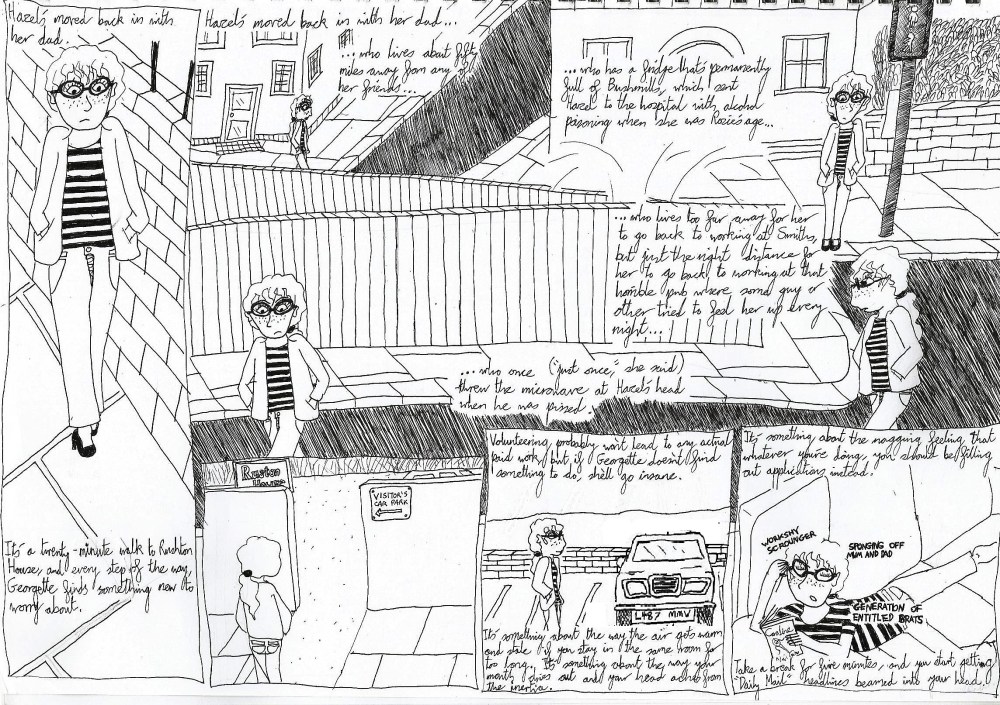 Hazel's moved back in with
her dad.
It's a twenty-minute walk to Rushton
House, and every step of the way,
Georgette finds something new to
worry about.
Hazel's moved back in with her dad...
...who lives about fifty
miles away from any of
her friends...
...who has a fridge that's permanently
full of Bushmills, which sent
Hazel to the hospital with alcohol
poisoning when she was Rosie's age...
...who lives too far away for her
to go back to working at Smiths,
but just the right distance for
her to go back to working at that
horrible pub where some guy or
other tried to feel her up every
night...
...who once ("just once," she said)
threw the microwave at Hazel's head
when he was pissed.
Rushton
House
VISITOR'S
CAR PARK
Volunteering probably won't lead to any actual
paid work, but if Georgette doesn't find
something to do, she'll go insane.
L487 MMV
It's something about the way the air gets warm
and stale if you stay in the same room for
too long. It's something about the way your
mouth dries out and your head aches from
the inertia.
It's something about the nagging feeling that
whatever you're doing, you should be filling
out applications instead.
WORKSHY
SCROUNGER
SPONGING OFF
MUM AND DAD
GENERATION OF
ENTITLED BRATS
Take a break for five minutes, and you start getting
"Daily Mail" headlines beamed into your head.